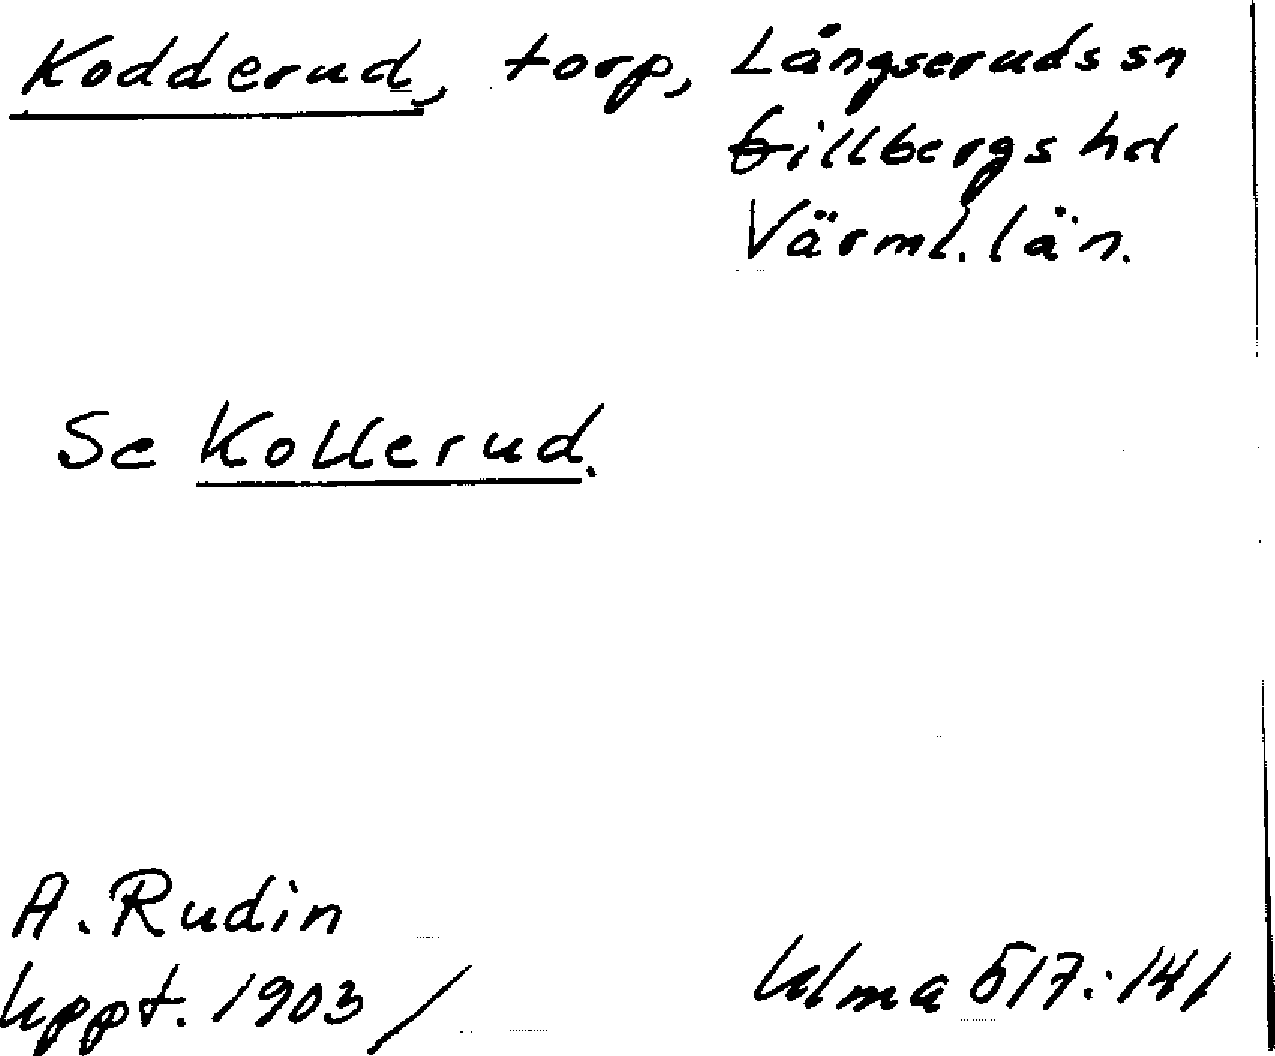 Kodderud, torp, Långseruds sn
Gillbergs hd
Värml. län.
Se Kollerud.
A. Rudin
Uppt. 1903 /
Ulma 517:141